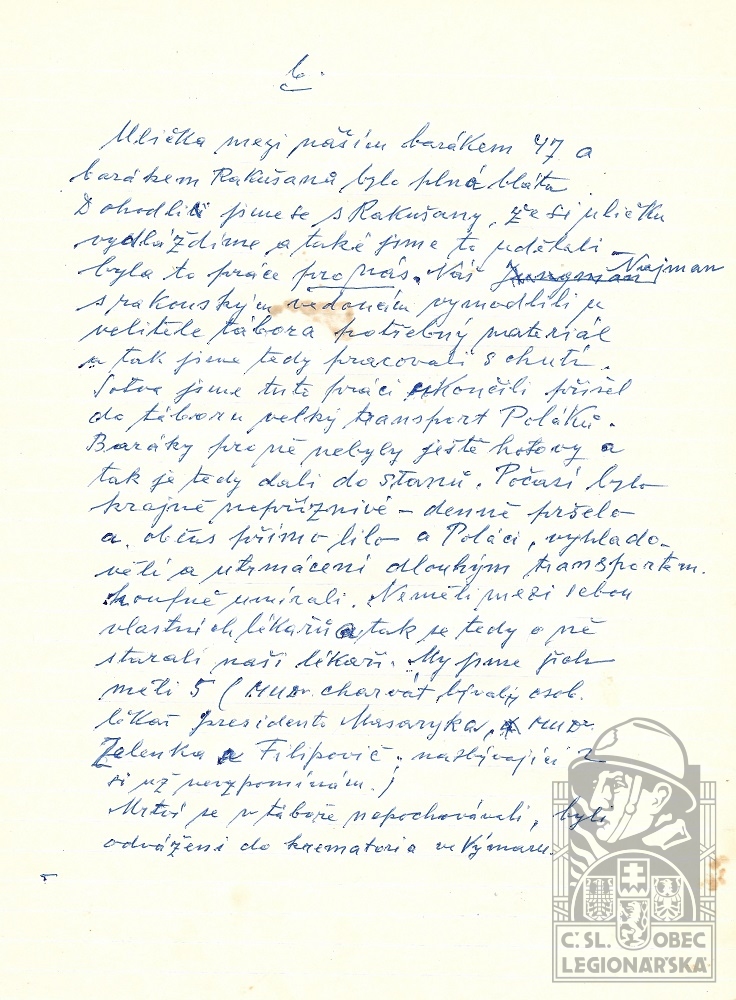 6.
Ulička mezi naším barákem 47 a
barákem Rakušanů byla plná bláta.
Dohodli jsme se s Rakušany, že si uličku
vydláždíme a také jsme to udělali –
byla to práce pro nás. Náš Jungman Najman
s rakouským vedoucím vymodlili u
velitele tábora potřebný materiál
a tak jsme tedy pracovali s chutí.
Sotva jsme tuto práci ukončili přišel
do táboru velký transport Poláků.
Baráky pro ně nebyly ještě hotovy a
tak je tedy dali do stanů. Počasí bylo
krajně nepříznivé – denně pršelo
a občas přímo lilo a Poláci, vyhlado-
vělí a utrmáceni dlouhým transportem.
houfně umírali. Neměli mezi sebou
vlastních lékařů a tak se tedy o ně
starali naši lékaři. My jsme jich
měli 5 (MUDr. Charvát, bývalý osob.
lékař presidenta Masaryka, MUDr.
Zelenka a Filipovič, nazbývající 2
si už nevzpomínám.)
Mrtví se v táboře nepochovávali, byli
odváženi do krematoria ve Výmaru.
Č.SL. OBEC
LEGIONÁŘSKÁ